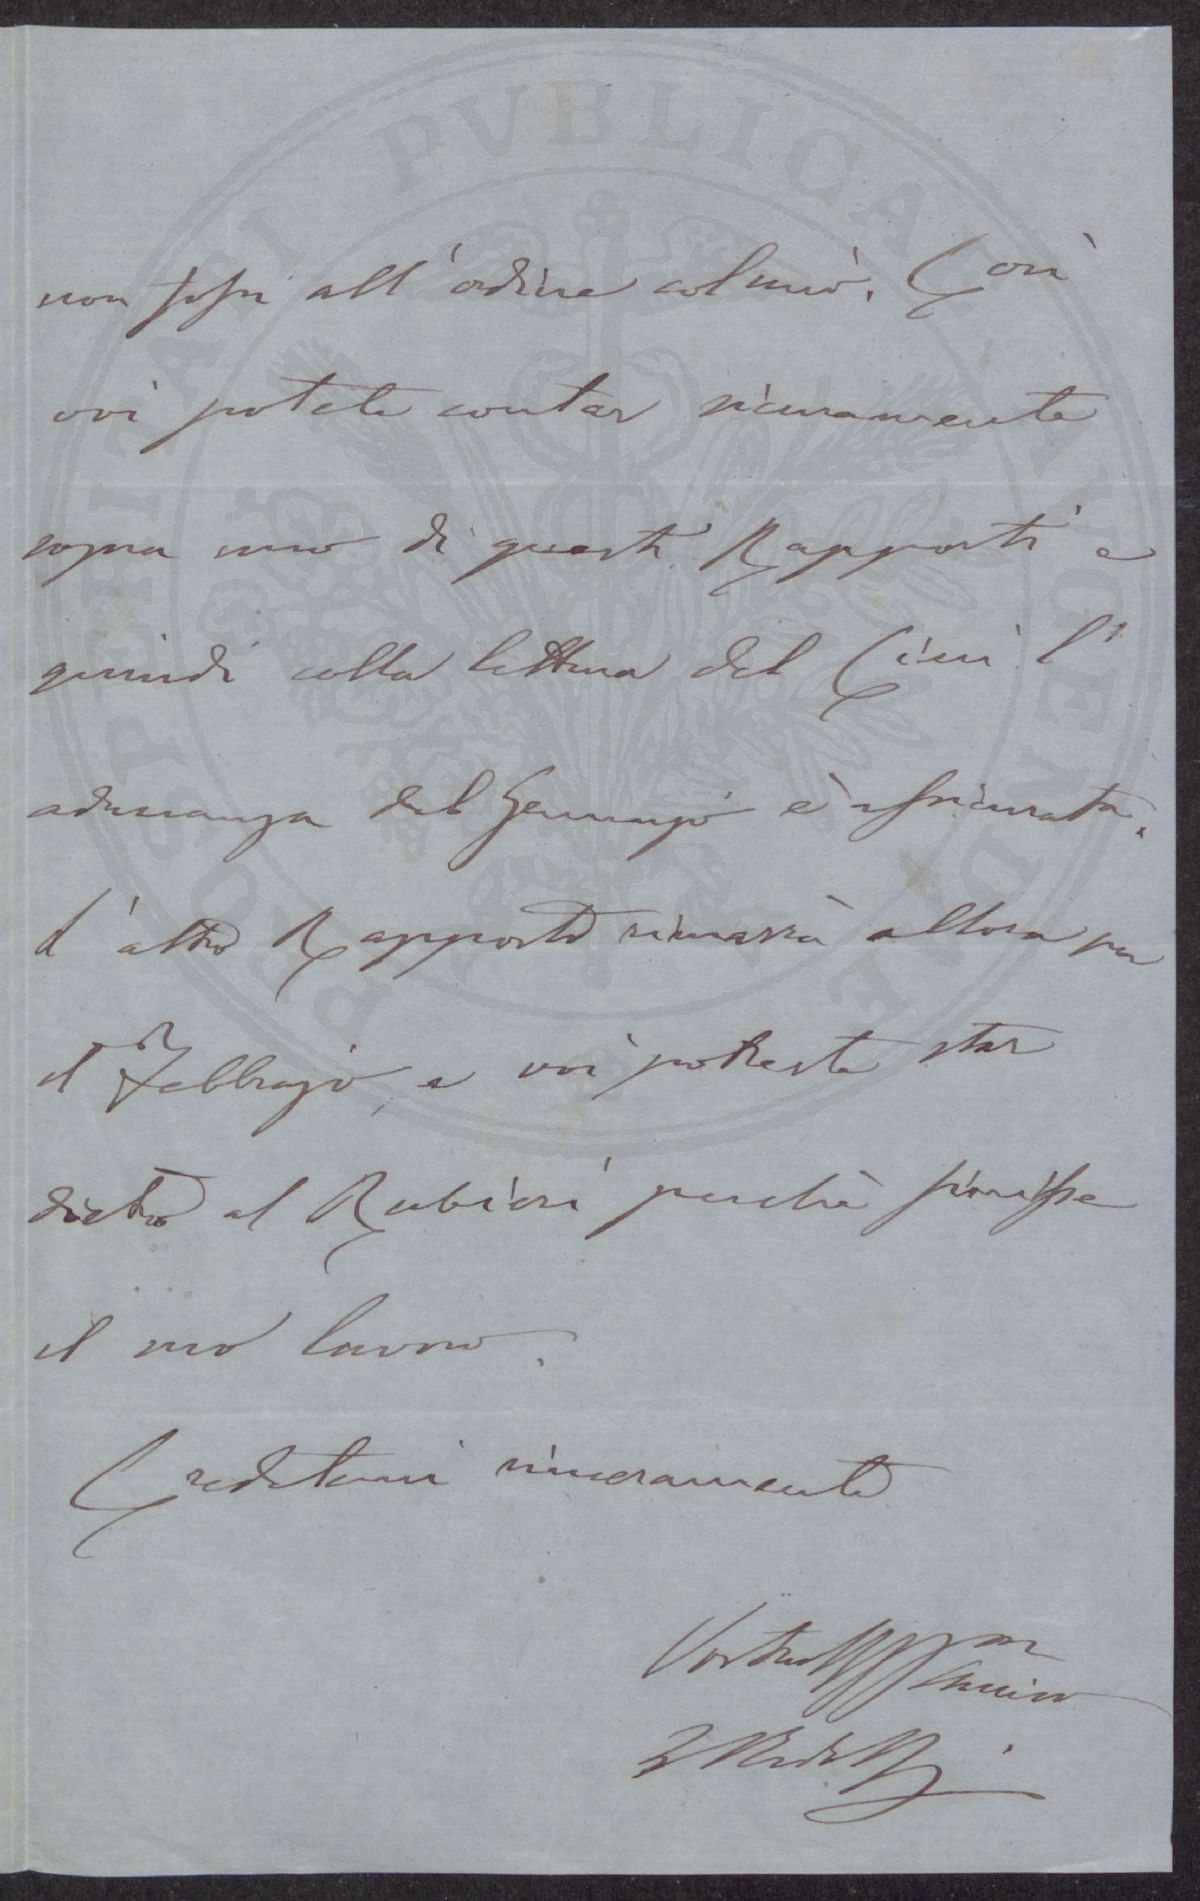 PROSPERITATI PVBLICAE AVGENDAE
non fosse all'ordine col mio. Così
voi potete contar sicuramente
sopra uno di questi Rapporti e
quindi colla lettura del Cini l'
adunanza del Gennajo è assicurata.
L'altro Rapporto rimarrà allora per
il Febbrajo, e voi potreste star
dietro al Rubieri perchè finisse
il suo lavoro.
Credetemi sinceramente
Vostro Amico